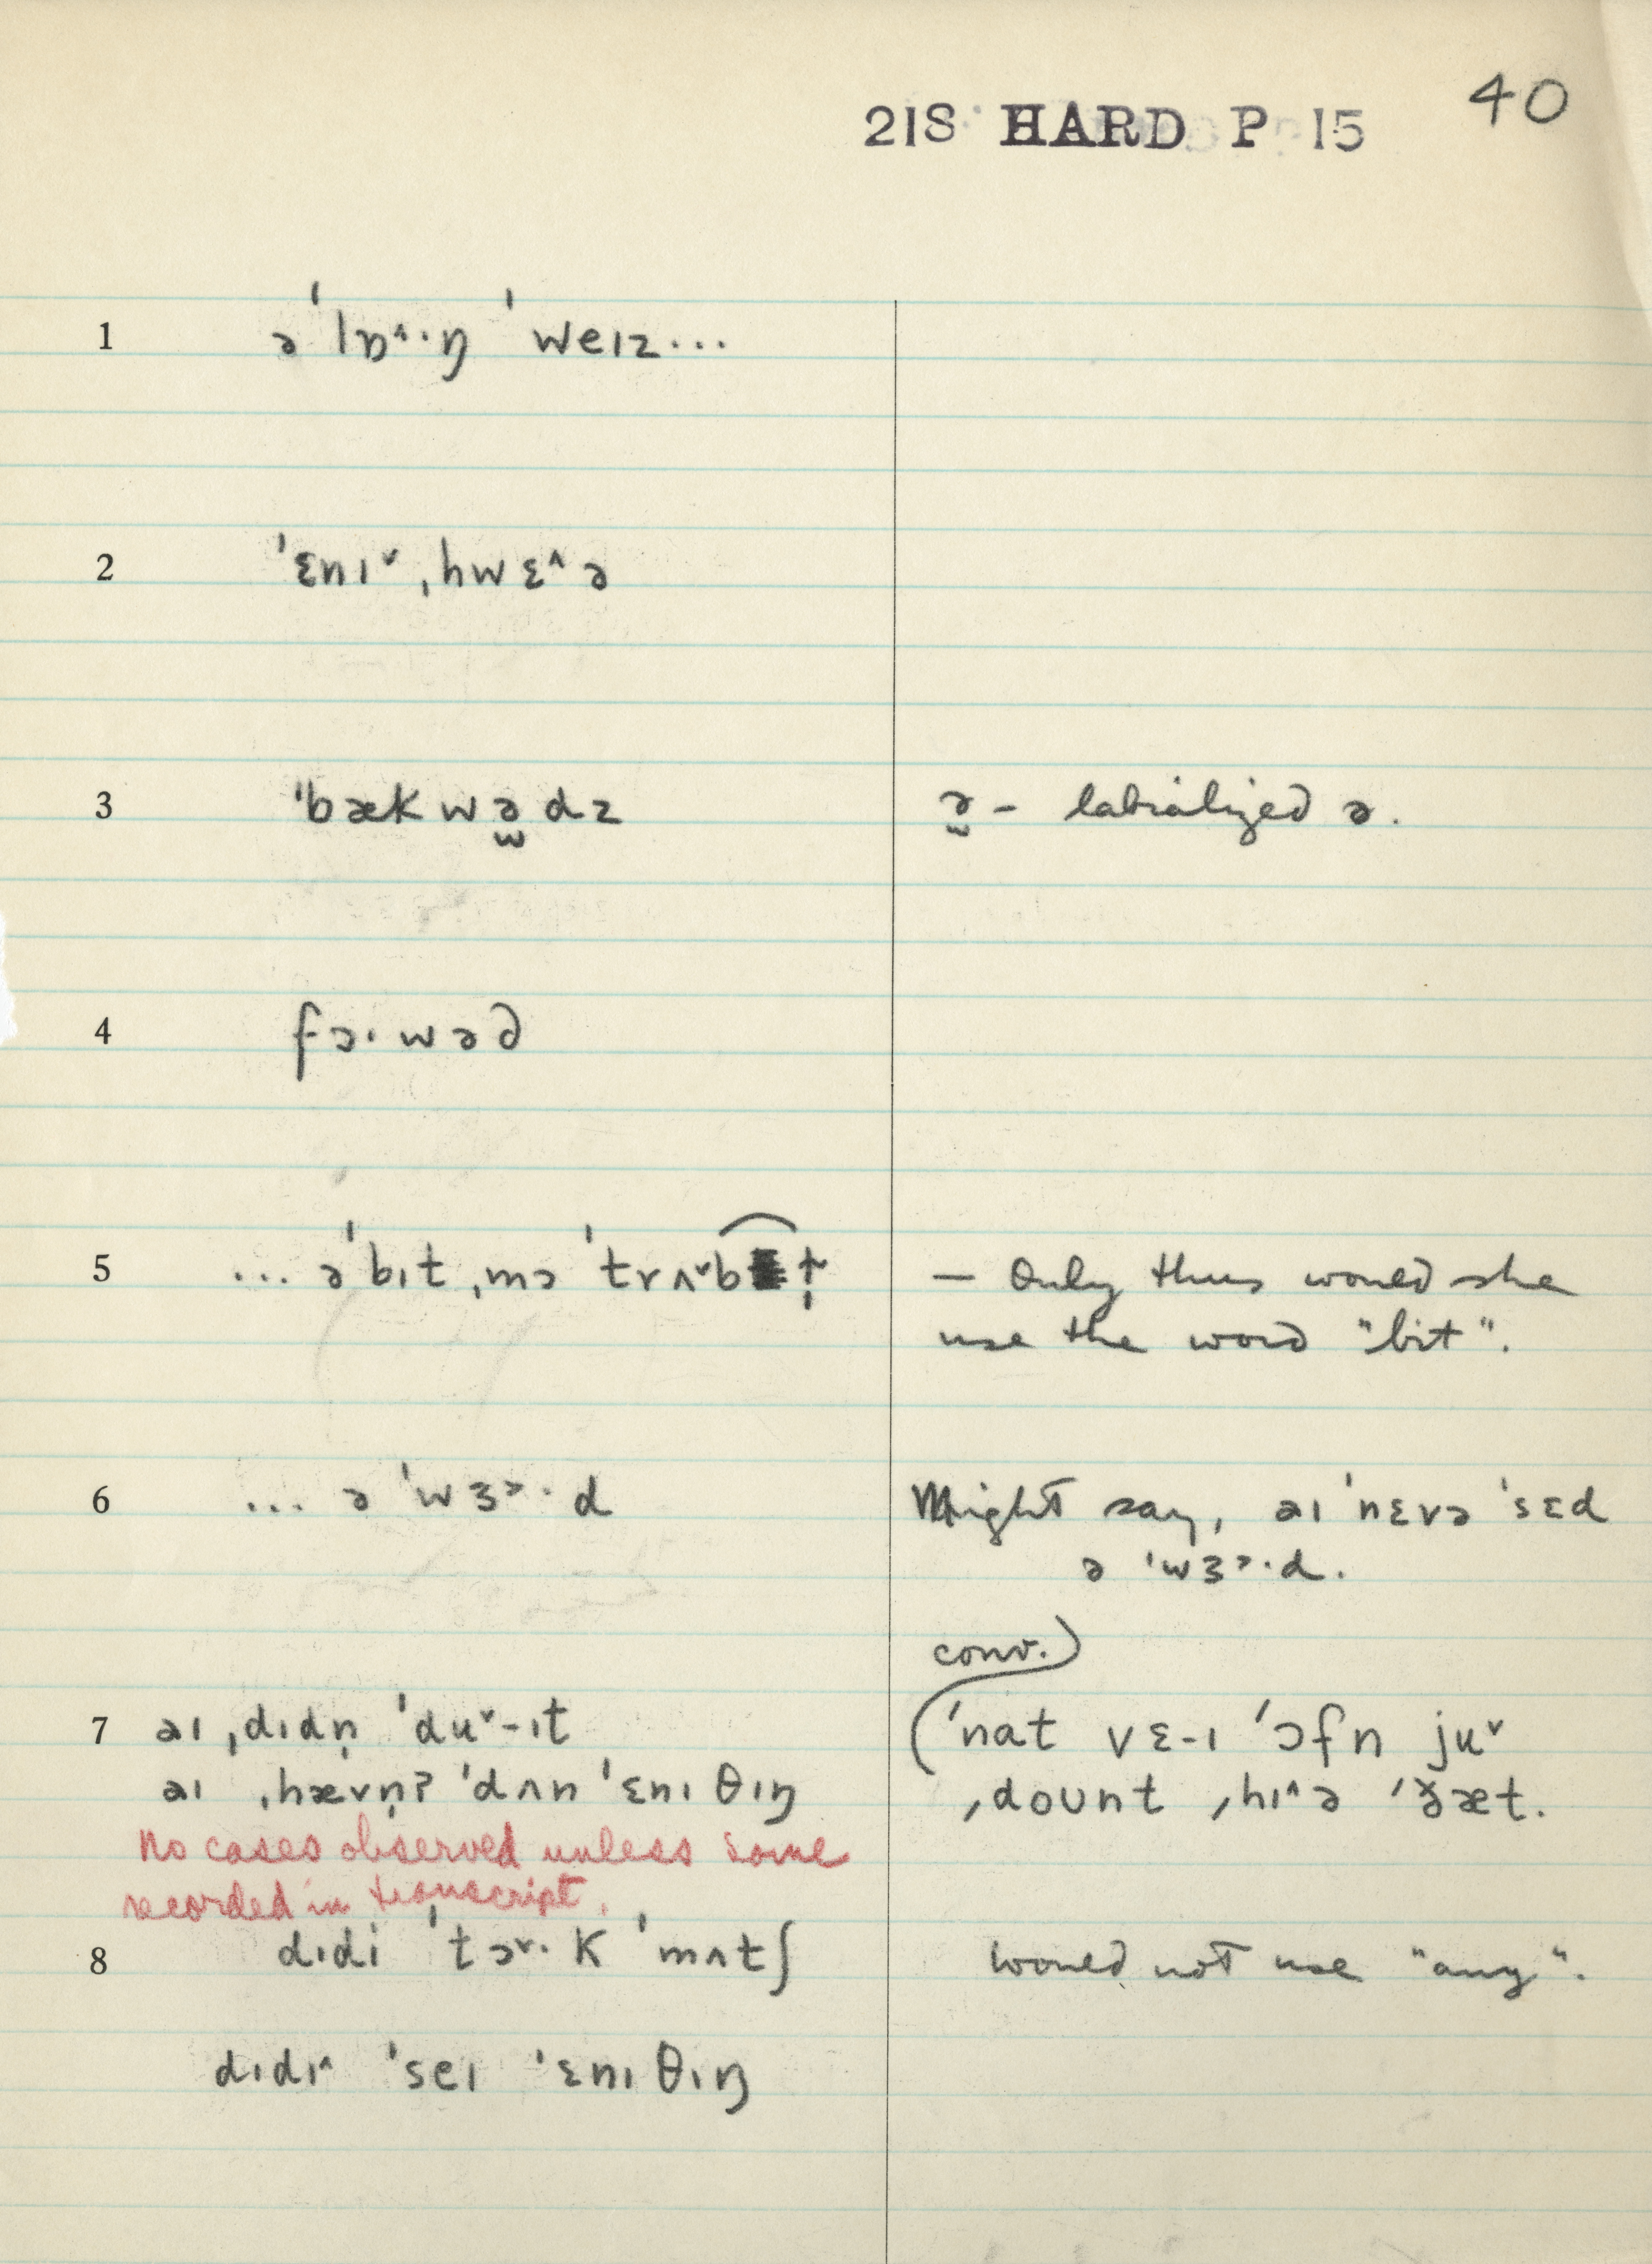 21S HARD P 15 40
1 ə ˈlɒ˄·ŋ ˈweɪz...
2 ˈɛnɪ˅ ˌhwɛ˄ə
3 ˈbækwə̫dz ə̫ – labialized ə.
4 fɔ·wəd
5 ... əˈbɪt ˌmɔ ˈtrʌ˅bɫ̩ — Only thus would she
use the word "bit".
6 ... ə ˈwɜ˃·d Might say, əɪ ˈnɛvə ˈsɛd
ə ˈwɜ˃·d.
conv.)
7 əɪ ˌdɪdn̩ ˈdu˅-ɪt (ˈnat vɛ-ɪ ˈɔfn ju˅
əɪ ˌhævn̩ʔ ˈdʌn ˈɛnɪθɪŋ ˌdoʊnt ˌhɪ˄ə ˈðæt.
No cases observed unless some
recorded in transcript.
8 dɪdi ˈtɔ˅·k ˈmʌtʃ would not use "any".
dɪdɪ˄ ˈseɪ ˈɛnɪθɪŋ